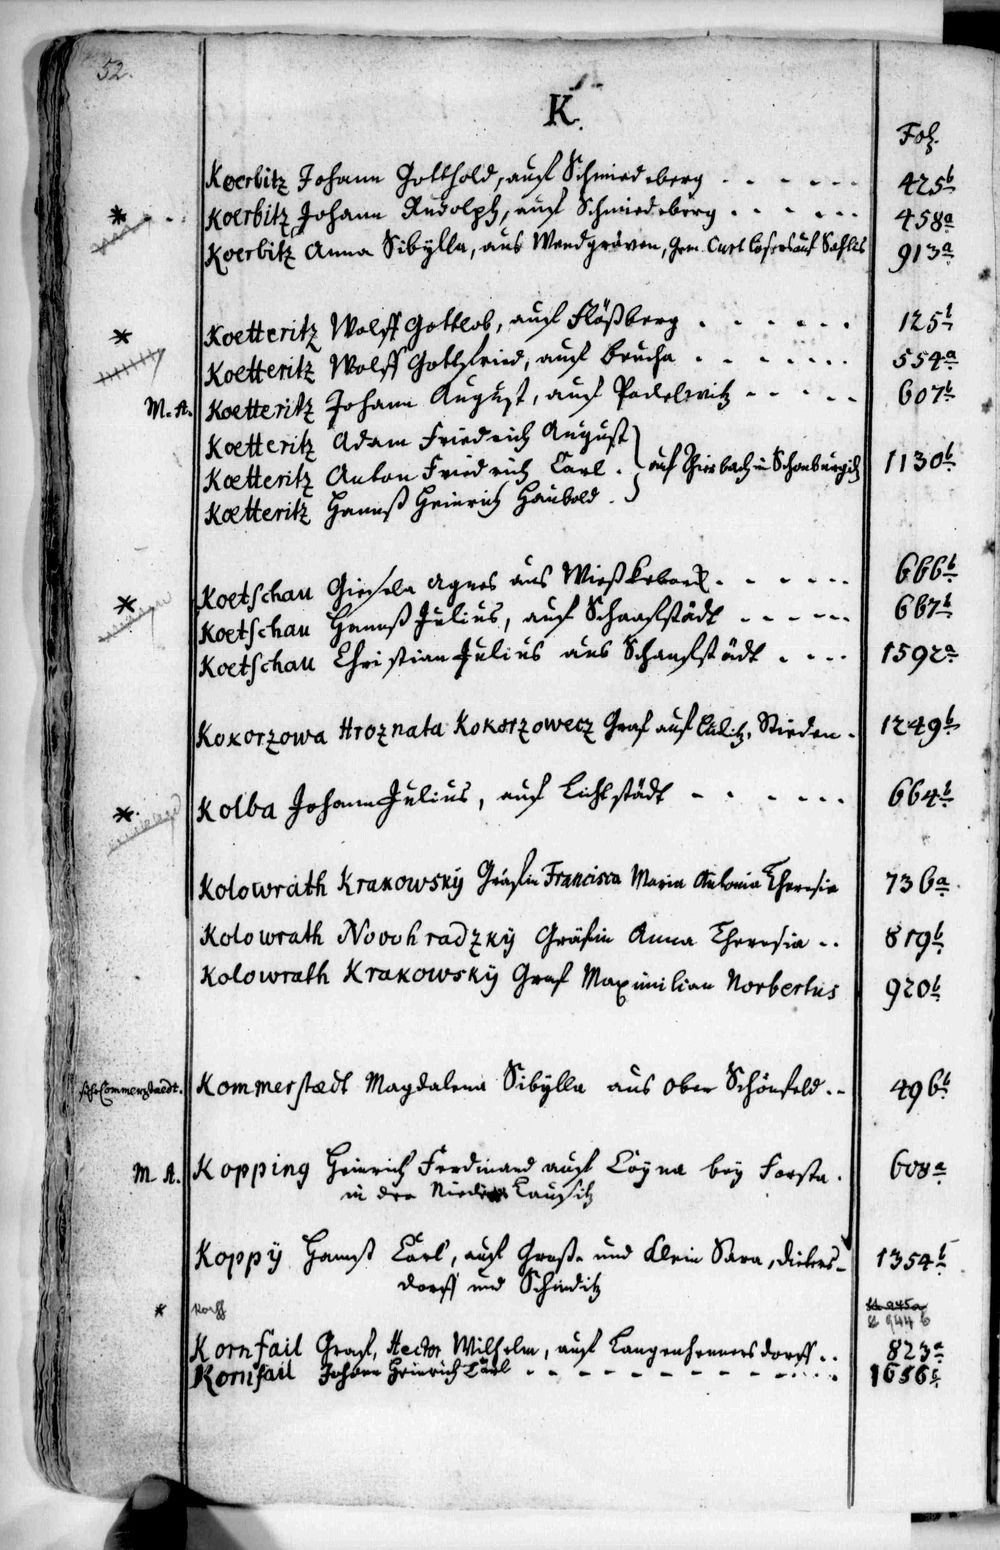 52.
K.
Fol.
Koerbitz Johann Gotthold, auf Schmiedeberg 425b
* Koerbitz Johann Rudolph, auf Schmiedeberg 458a
Koerbitz Anna Sibÿlla, aus Wendgräven, Curt Losers auf Sahlis 913a
* Koetteritz Wolff Gottlob, auf Flößberg 125b
Koetteritz Wolff Gottfried, auf Brucha 554a
M. A. Koetteritz Johann August, auf Podelwitz 607b
Koetteritz Adam Friedrich August
Koetteritz Anton Friedrich Carl auf Thierbach in Schonburgisch 1130b
Koetteritz Hannß Heinrich Haubold
Koetschau Gisela Agnes aus 666b
* Koetschau Hannß Julius, auf Schaafstädt 667b
Koetschau Christian Julius aus Schaafstädt 1592a
Kokorzowa Hroznata Kokorzowecz Graf auf 1249b
* Kolba Johann Julius, auf Lichtstädt 664b
Kolowrath Krakowskÿ Gräfin Francisca Maria Antonia Theresia 736a
Kolowrath Novohradzkÿ Gräfin Anna Theresia 819b
Kolowrath Krakowskÿ Graf Maximilian Norbertus 920b
Commerstaedt. Kommerstædt Magdalena Sibÿlla aus Ober Schönfeld 496b
M. A. Kopping Heinrich Ferdinand auf Coÿna beÿ Forsta
in der Nieder Lausitz 608a
Koppÿ Hannß Carl, auf Große und Klein Sara, Dieters-
dorff und Schinditz 1354b
* Korff 944 b
Kornfail Graf, Hector Wilhelm, auf Langenhennersdorff 823a
Kornfail Johann Heinrich Carl 1656b